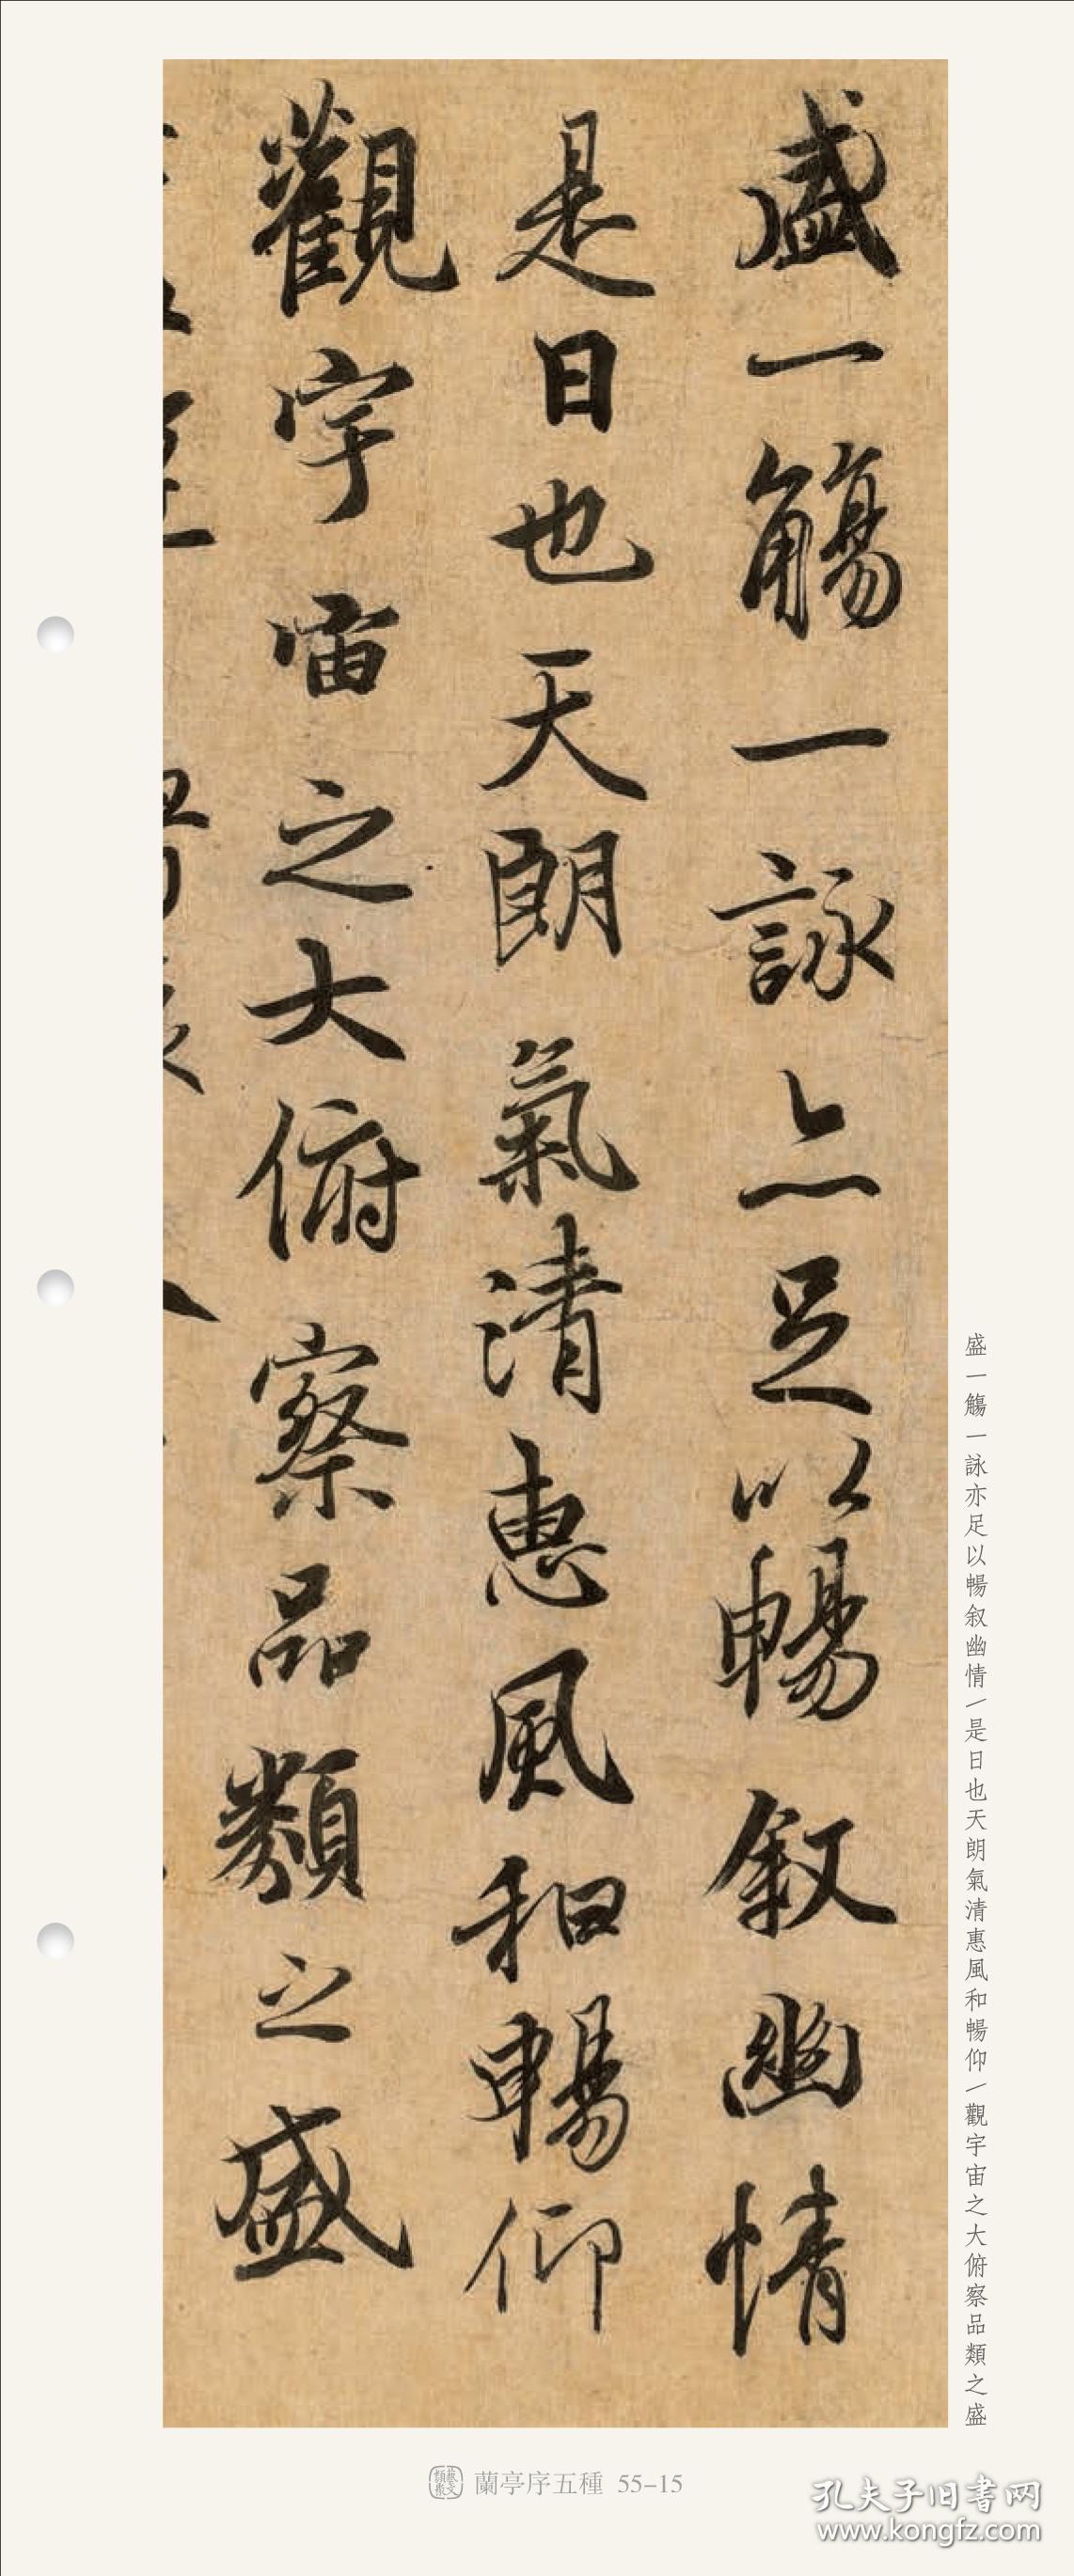 盛一觴一詠亦足以暢叙幽情
是日也天朗氣清惠風和暢仰
觀宇宙之大俯察品類之盛
盛一觴一詠亦足以暢叙幽情/是日也天朗氣清惠風和暢仰/觀宇宙之大俯察品類之盛
蘭亭序五種 55-15
孔夫子旧书网
www.kongfz.com